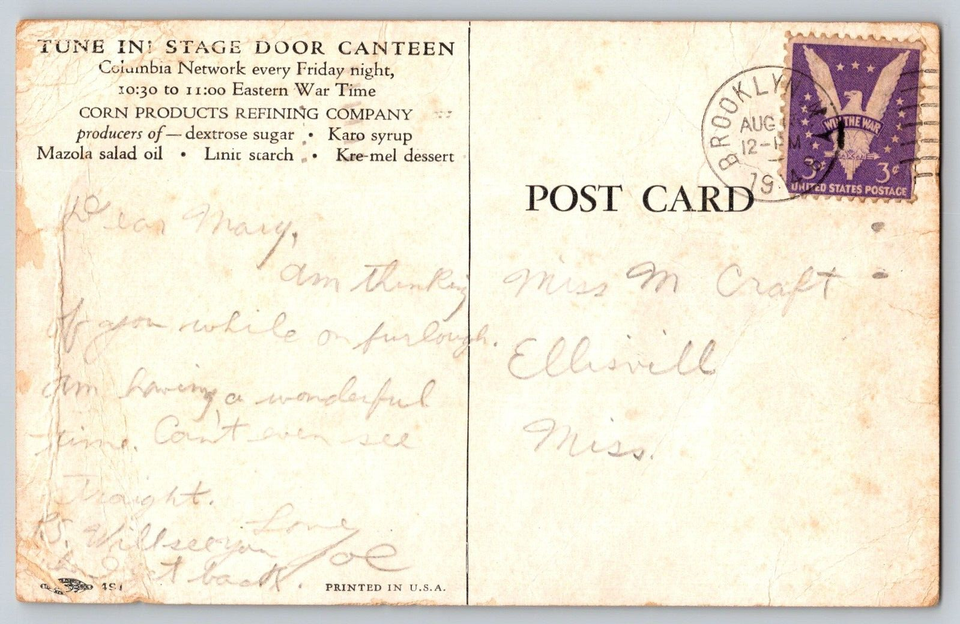 TUNE IN! STAGE DOOR CANTEEN
Columbia Network every Friday night,
10:30 to 11:00 Eastern War Time
CORN PRODUCTS REFINING COMPANY
producers of — dextrose sugar • Karo syrup
Mazola salad oil • Linit starch • Kre-mel dessert
Dear Mary,
Am thinking
of you while on furlough.
Am having a wonderful
time. Can't even see
traight.
Love
P.S. Will see you
Joe
back.
PRINTED IN U.S.A.
BROOKLYN
AUG
12-PM
WIN THE WAR
3¢ 3¢
UNITED STATES POSTAGE
POST CARD
Miss M Craft
Ellisvill
Miss.